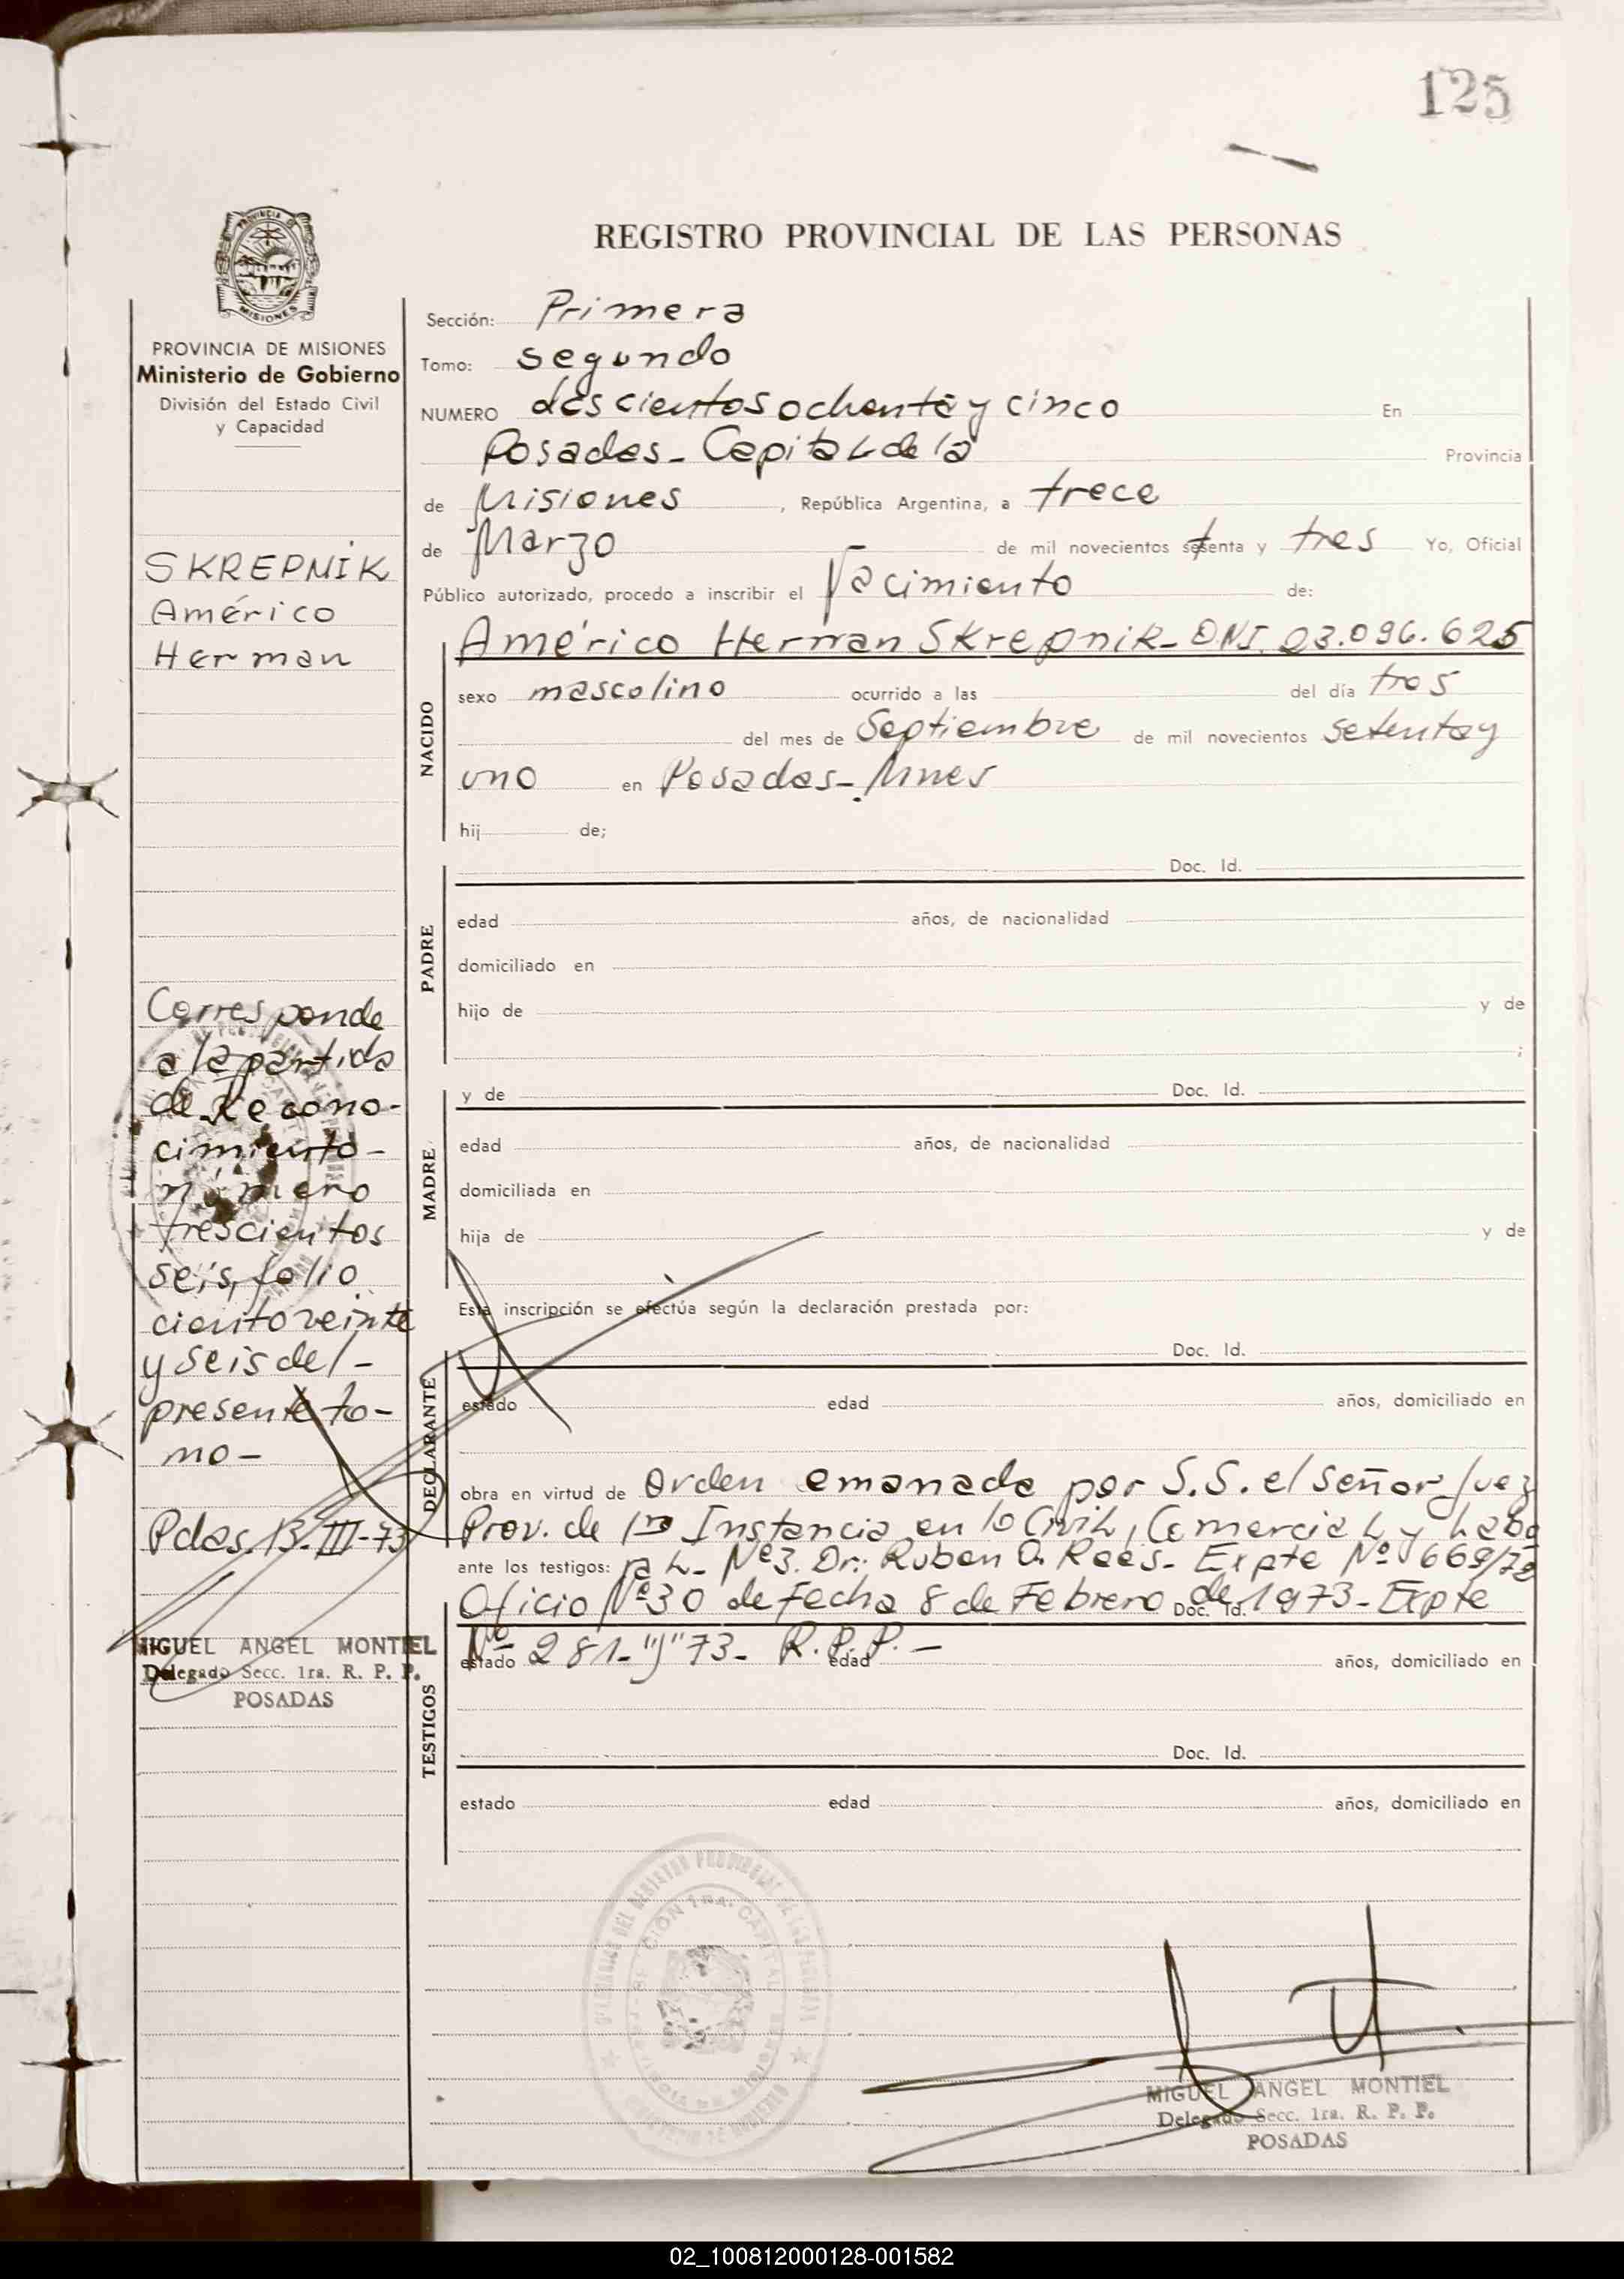 125
REGISTRO PROVINCIAL DE LAS PERSONAS
PROVINCIA DE MISIONES
Ministerio de Gobierno
División del Estado Civil
y Capacidad
SKREPNIK
Américo
Herman
Corresponde
a la partida
de Recono-
cimiento-
número
trescientos
seis, folio
ciento veinte
y seis del-
presente to-
mo-
Pdas. 13-III-73
MIGUEL ANGEL MONTIEL
Delegado Secc. 1ra. R. P. P.
POSADAS
Sección: Primera
Tomo: segundo
NUMERO doscientos ochenta y cinco En
Posadas- Capital de la Provincia
de Misiones, República Argentina, a trece
de Marzo de mil novecientos setenta y tres Yo, Oficial
Público autorizado, procedo a inscribir el Nacimiento de:
NACIDO
Américo Herman Skrepnik- DNI. 23.096.625
sexo mascolino ocurrido a las del día tres
del mes de Septiembre de mil novecientos setenta y
uno en Posadas- Mnes
hij de;
PADRE
Doc. Id.
edad años, de nacionalidad
domiciliado en
hijo de y de
;
MADRE
y de Doc. Id.
edad años, de nacionalidad
domiciliada en
hija de y de
Esta inscripción se efectúa según la declaración prestada por:
DECLARANTE
Doc. Id.
estado edad años, domiciliado en
obra en virtud de Orden emanada por S.S. el Señor Juez
Prov. de 1ra Instancia en lo Civil, Comercial y Labo
ante los testigos: ral- Nº3. Dr: Ruben O. Rees- Expte Nº 669/72
Oficio Nº30 de fecha 8 de Febrero de 1973- Expte
Doc. Id.
TESTIGOS
Nº 281-"J"73- R.P.P.-
estado edad años, domiciliado en
Doc. Id.
estado edad años, domiciliado en
MIGUEL ANGEL MONTIEL
Delegado Secc. 1ra. R. P. P.
POSADAS
02_100812000128-001582